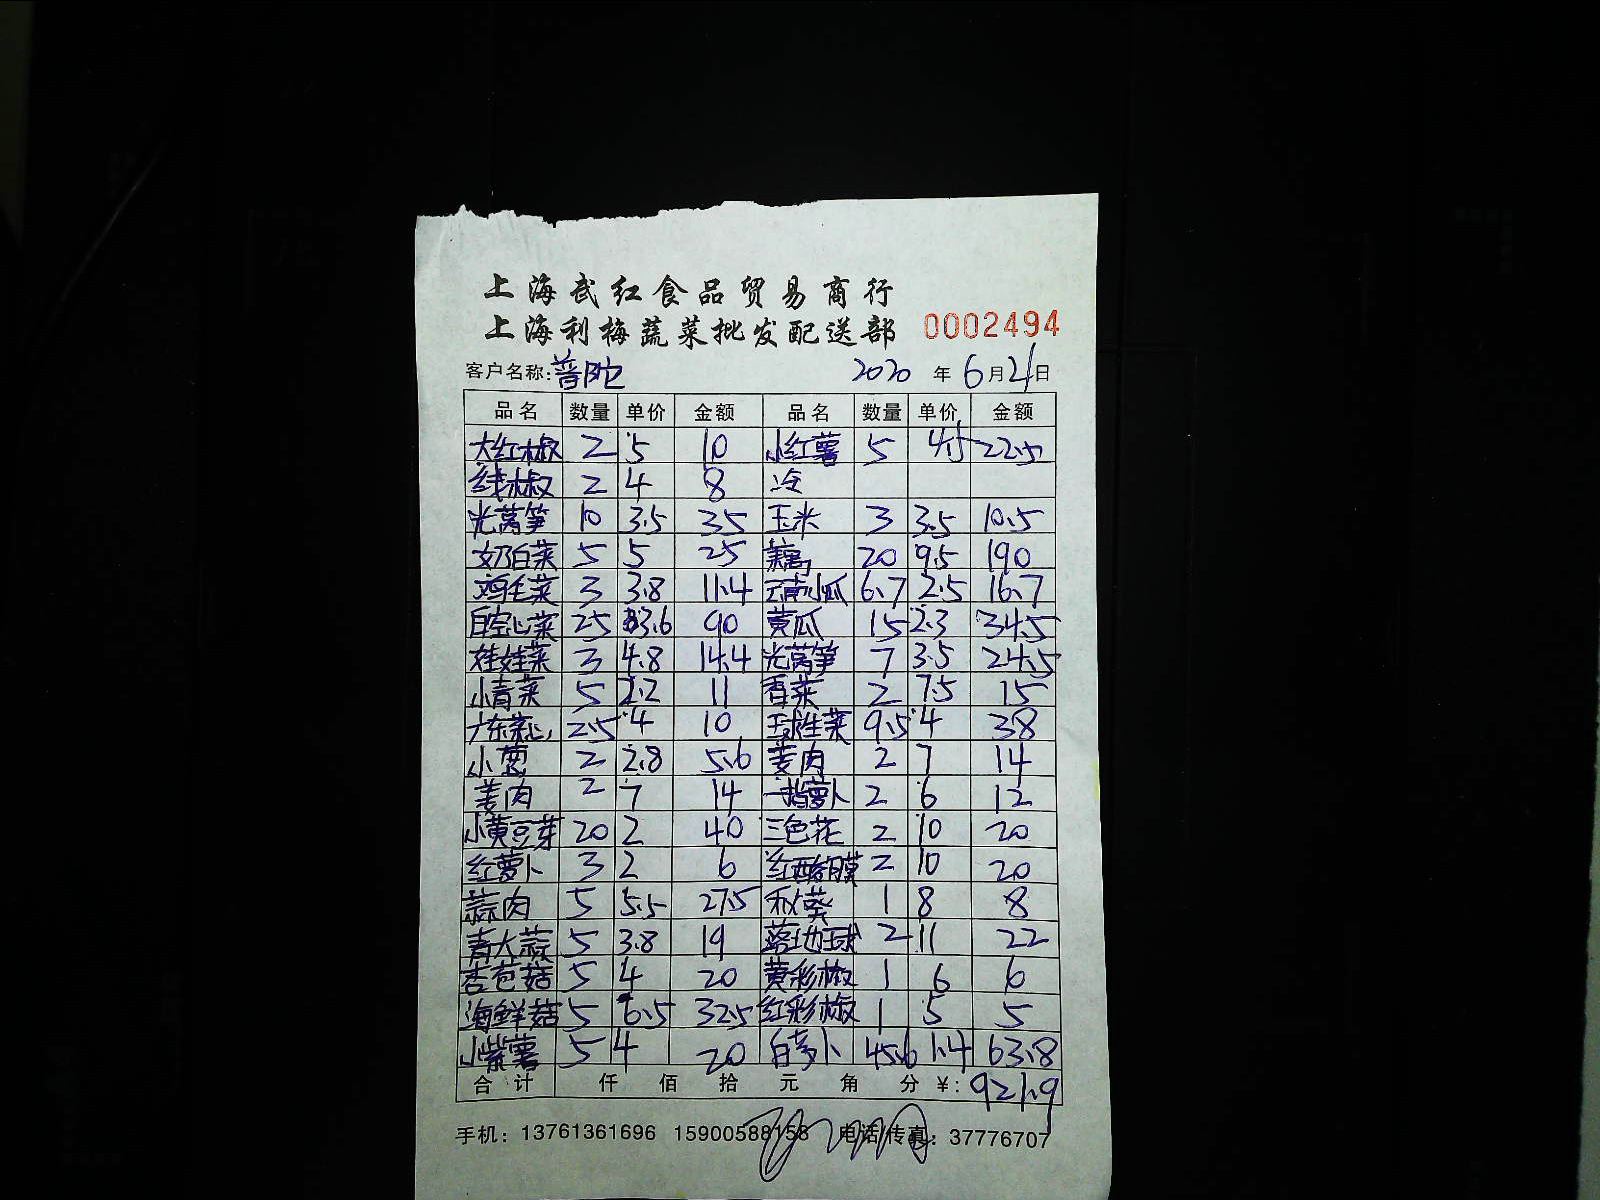 上海武红食品贸易商行
上海利梅蔬菜批发配送部 0002494
客户名称:普陀 2020 年 6 月 21 日
品名 数量 单价 金额 品名 数量 单价 金额
大红椒 2 5 10 小红薯 5 4.5 22.5
线椒 2 4 8 冷
光莴笋 10 3.5 35 玉米 3 3.5 10.5
奶白菜 5 5 25 藕 20 9.5 190
鸡毛菜 3 3.8 11.4 云南小瓜 6.7 2.5 16.7
白空心菜 25 3.6 90 黄瓜 15 2.3 34.5
娃娃菜 3 4.8 14.4 光莴笋 7 3.5 24.5
小青菜 5 2.2 11 香菜 2 7.5 15
广东菜心 2.5 4 10 球生菜 9.5 4 38
小葱 2 2.8 5.6 姜肉 2 7 14
姜肉 2 7 14 一指萝卜 2 6 12
小黄豆芽 20 2 40 三色花 2 10 20
红萝卜 3 2 6 红酸膜 2 10 20
蒜肉 5 5.5 27.5 秋葵 1 8 8
青大蒜 5 3.8 19 落地球 2 11 22
杏苞菇 5 4 20 黄彩椒 1 6 6
海鲜菇 5 6.5 32.5 红彩椒 1 5 5
小紫薯 5 4 20 白萝卜 45.6 1.4 63.8
合计 仟 佰 拾 元 角 分 ¥: 921.9
手机: 13761361696 15900588158 电话/传真: 37776707